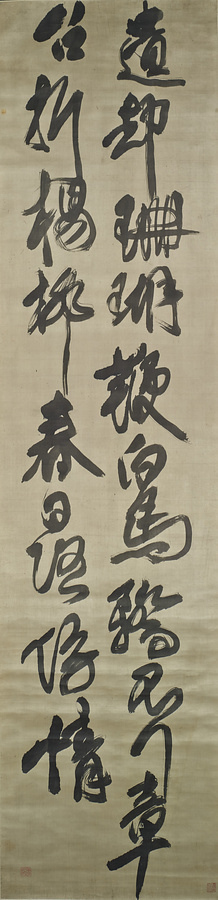 遺却珊瑚鞭白馬驕不行章
台折楊柳春日路傍情